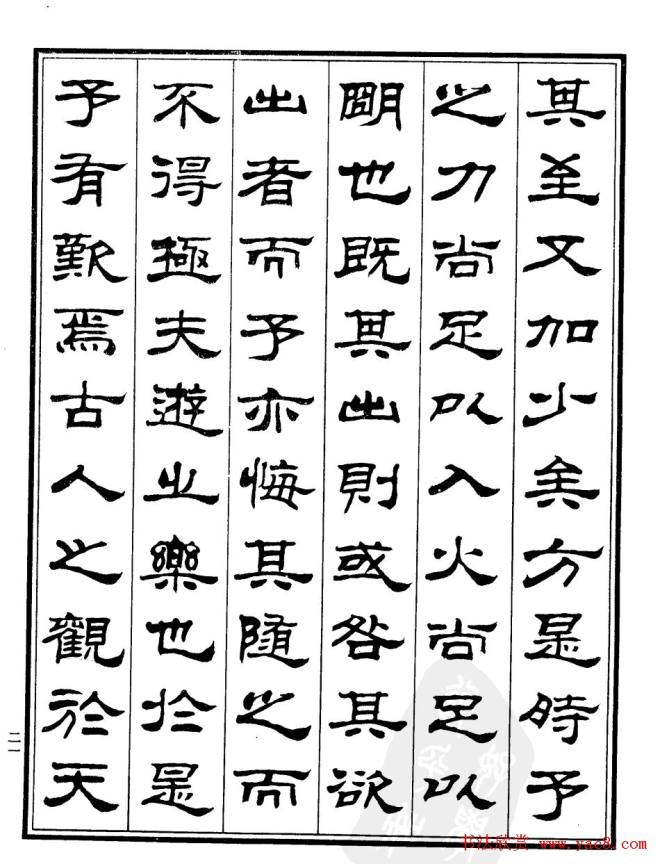 其至又加少矣方是時予
之力尚足以入火尚足以
明也既其出則或咎其欲
出者而予亦悔其隨之而
不得極夫遊之樂也於是
予有歎焉古人之觀於天
二一
书法欣赏 www.yac8.com